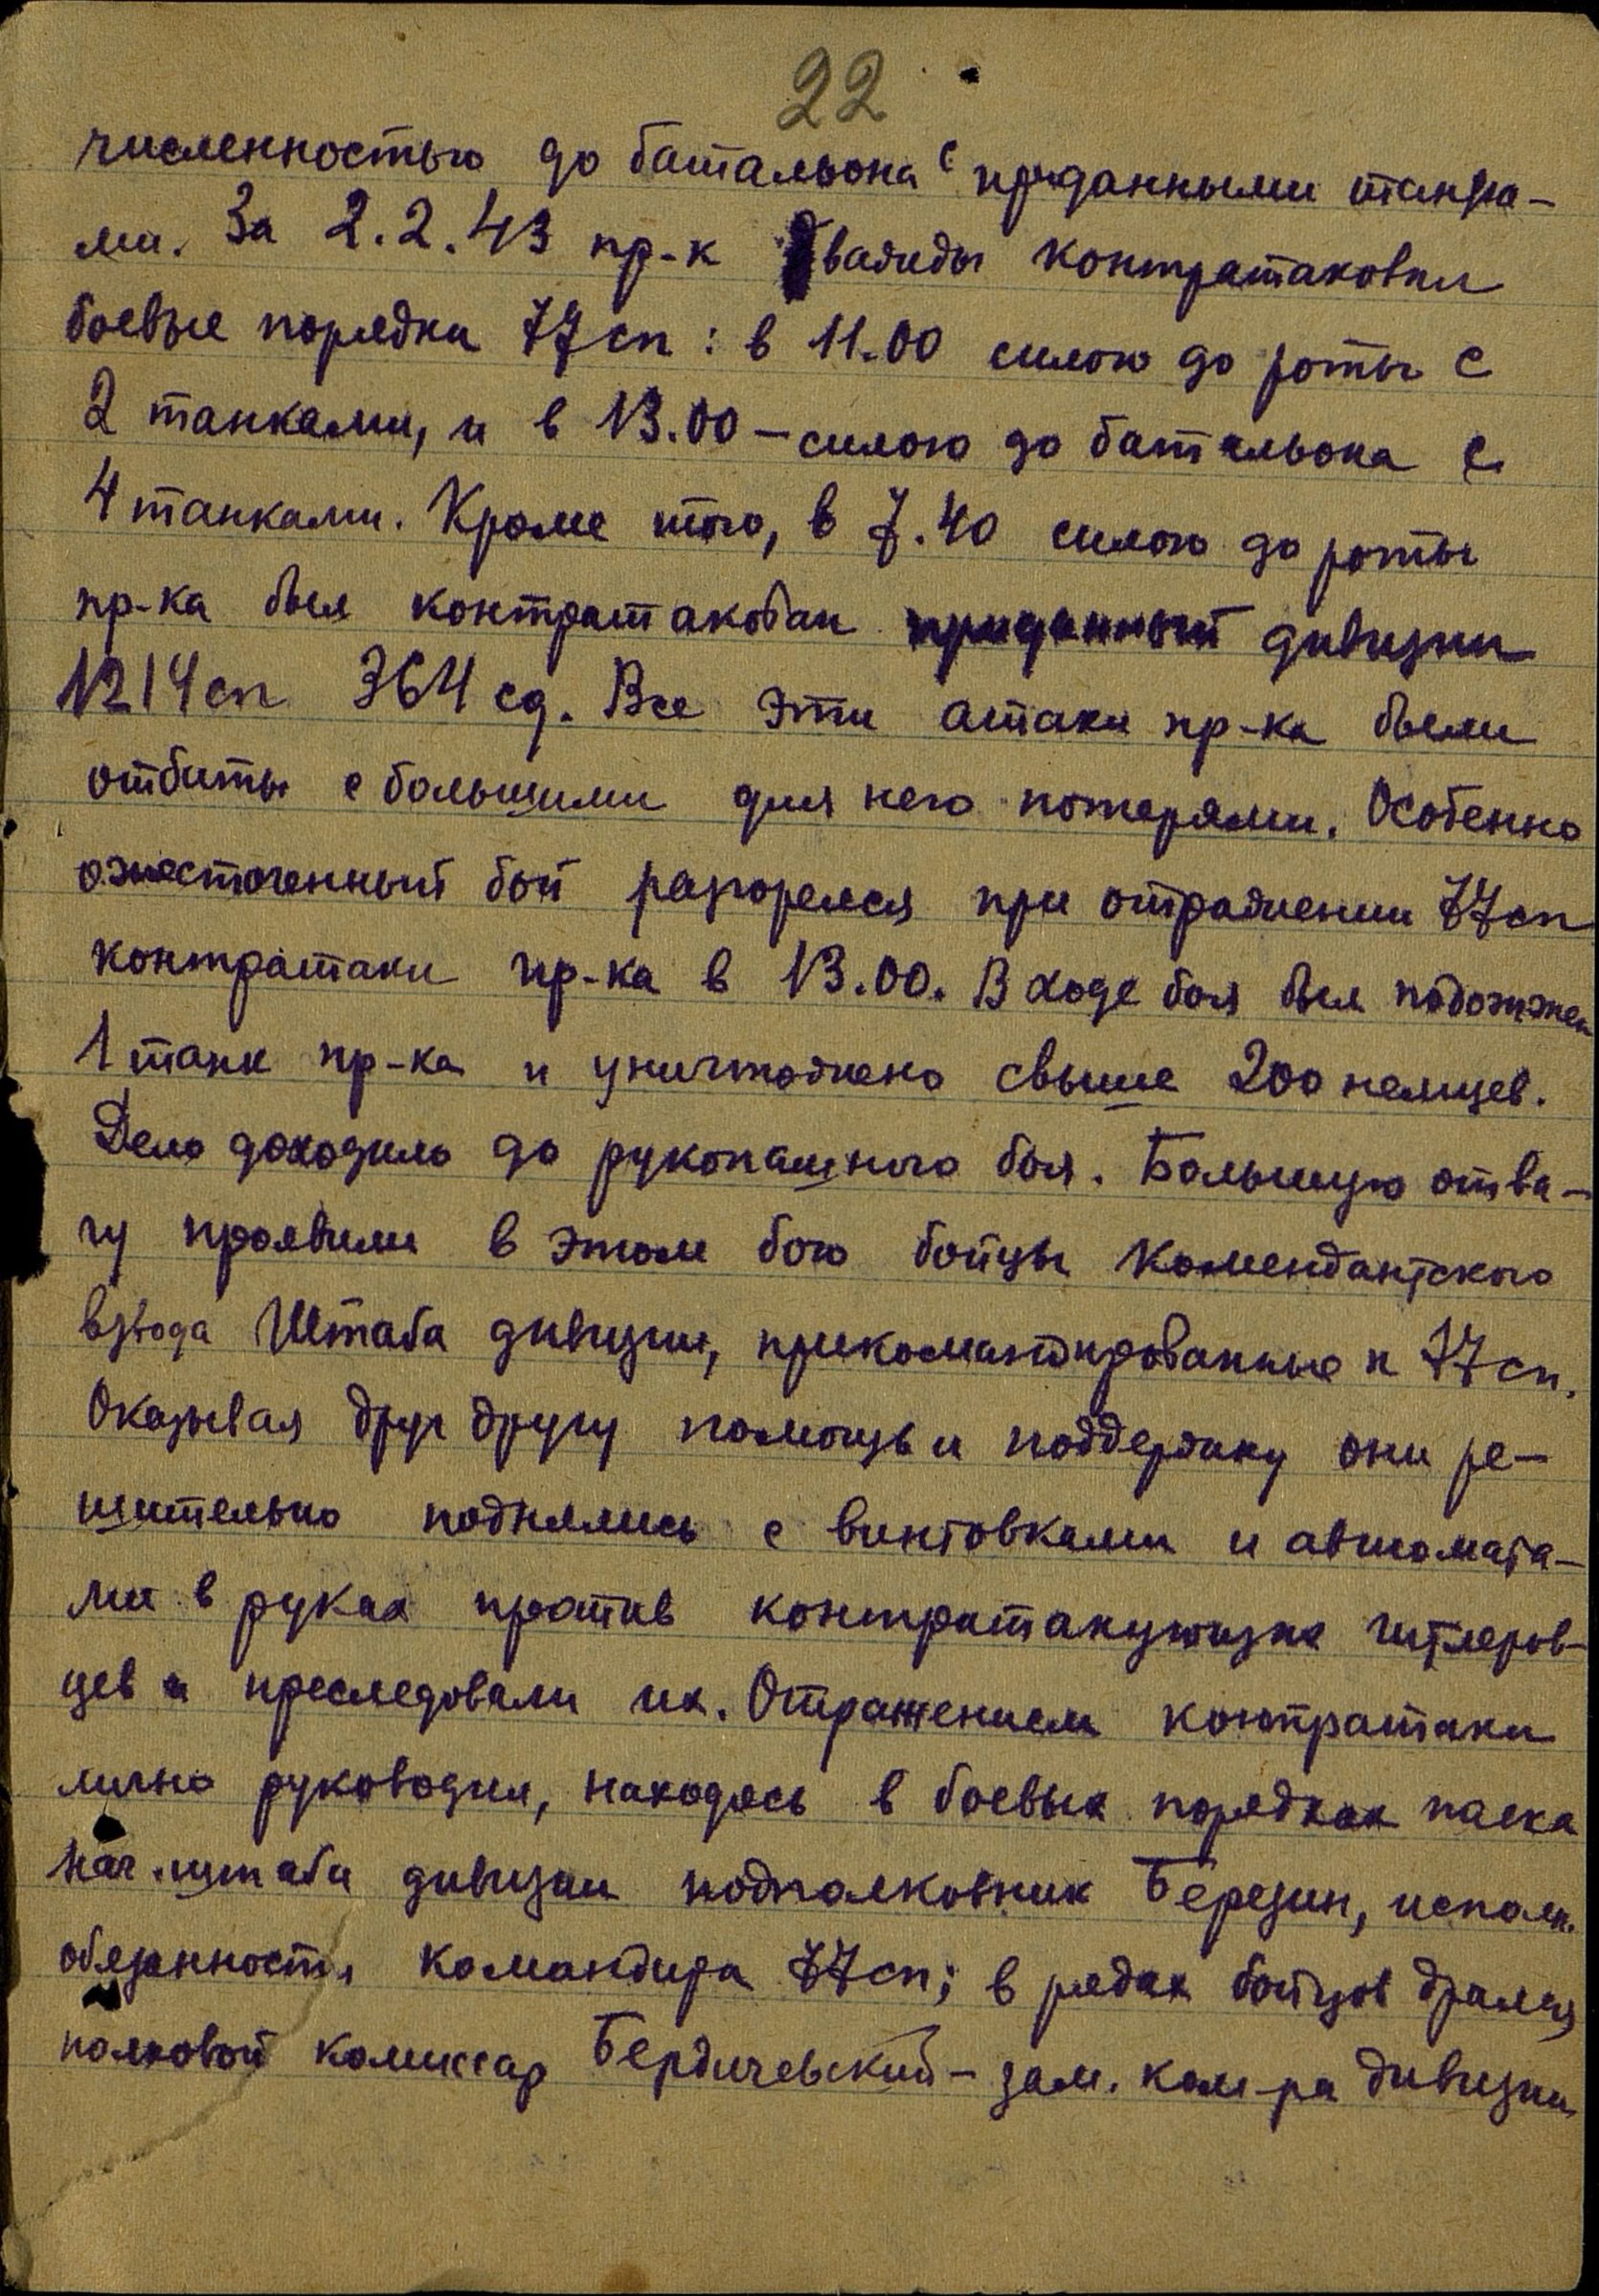 22
численностью до батальона с приданными танка-
ми. За 2.2.43 пр-к дважды контратаковал
боевые порядки 77 сп: в 11.00 силою до роты с
2 танками, и в 13.00 – силою до батальона с
4 танками. Кроме того, в 7.40 силою до роты
пр-ка был контратакован приданный дивизии
1214 сп 364 сд. Все эти атаки пр-ка были
отбиты с большими для него потерями. Особенно
ожесточенный бой разгорелся при отражении 77 сп
контратаки пр-ка в 13.00. В ходе боя был подожжен
1 танк пр-ка и уничтожено свыше 200 немцев.
Дело доходило до рукопашного боя. Большую отва-
гу проявили в этом бою бойцы Комендантского
взвода Штаба дивизии, прикомандированные к 77 сп.
Оказывая друг другу помощь и поддержку они ре-
шительно поднялись с винтовками и автомата-
ми в руках против контратакующих гитлеров-
цев и преследовали их. Отражением контратаки
лично руководил, находясь в боевых порядках полка
нач. штаба дивизии подполковник Березин, исполн.
обязанности командира 77 сп; в рядах бойцов дрался
полковой комиссар Бердичевский – зам. ком-ра дивизии